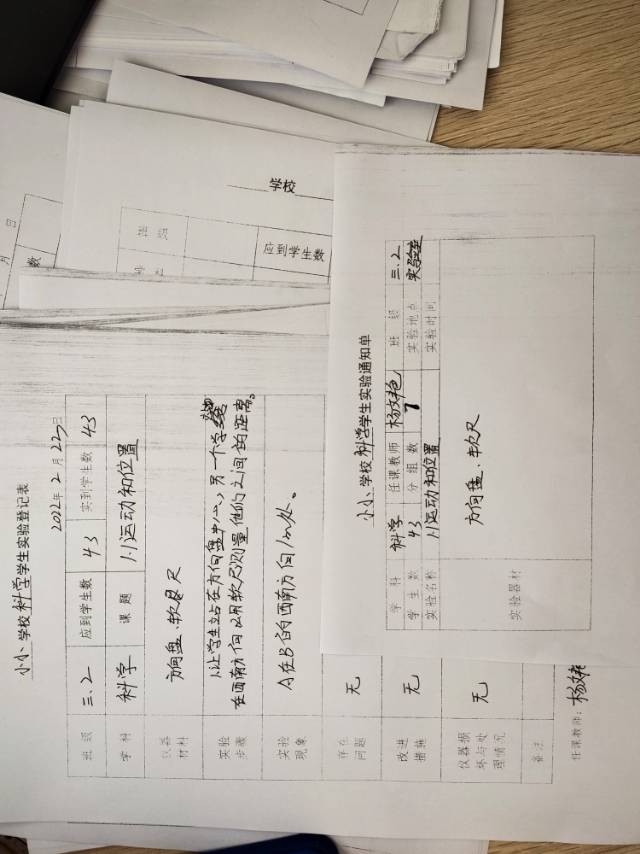 小小 学校 科学 学生实验登记表
2022年 2 月 22 日
班 级 三.2 应到学生数 43 实到学生数 43
学 科 科学 课 题 1.1运动和位置
仪器材料 方向盘、软尺
实验步骤 1.让学生站在方向盘中心,另一个学生
在西南方向 以用软尺测量他们之间的距离。
实验现象 A在B的西南方向1m处。
存在问题 无
改进措施 无
仪器损坏与处理情况 无
备注
任课教师:
小小 学校 科学 学生实验通知单
学 科 科学 任课教师 班 级 三.2
学 生 数 43 分 组 数 7 实验地点 实验室
实验名称 1.1运动和位置 实验时间
实验器材 方向盘、软尺
学校
班 级
应到学生数
月 日
数